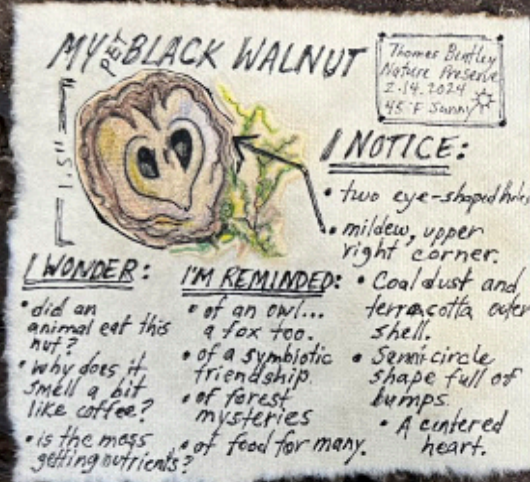 MY PET BLACK WALNUT
Thomas Bentley
Nature Preserve
2.14.2024
45°F Sunny
1.5"
I NOTICE:
• two eye-shaped holes
• mildew, upper
right corner.
• Coal dust and
terracotta outer
shell.
• Semi-circle
shape full of
bumps.
• A centered
heart.
I WONDER:
• did an
animal eat this
nut?
• why does it
smell a bit
like coffee?
• is the moss
getting nutrients?
I'M REMINDED:
• of an owl...
a fox too.
• of a symbiotic
friendship.
• of forest
mysteries
• of food for many.